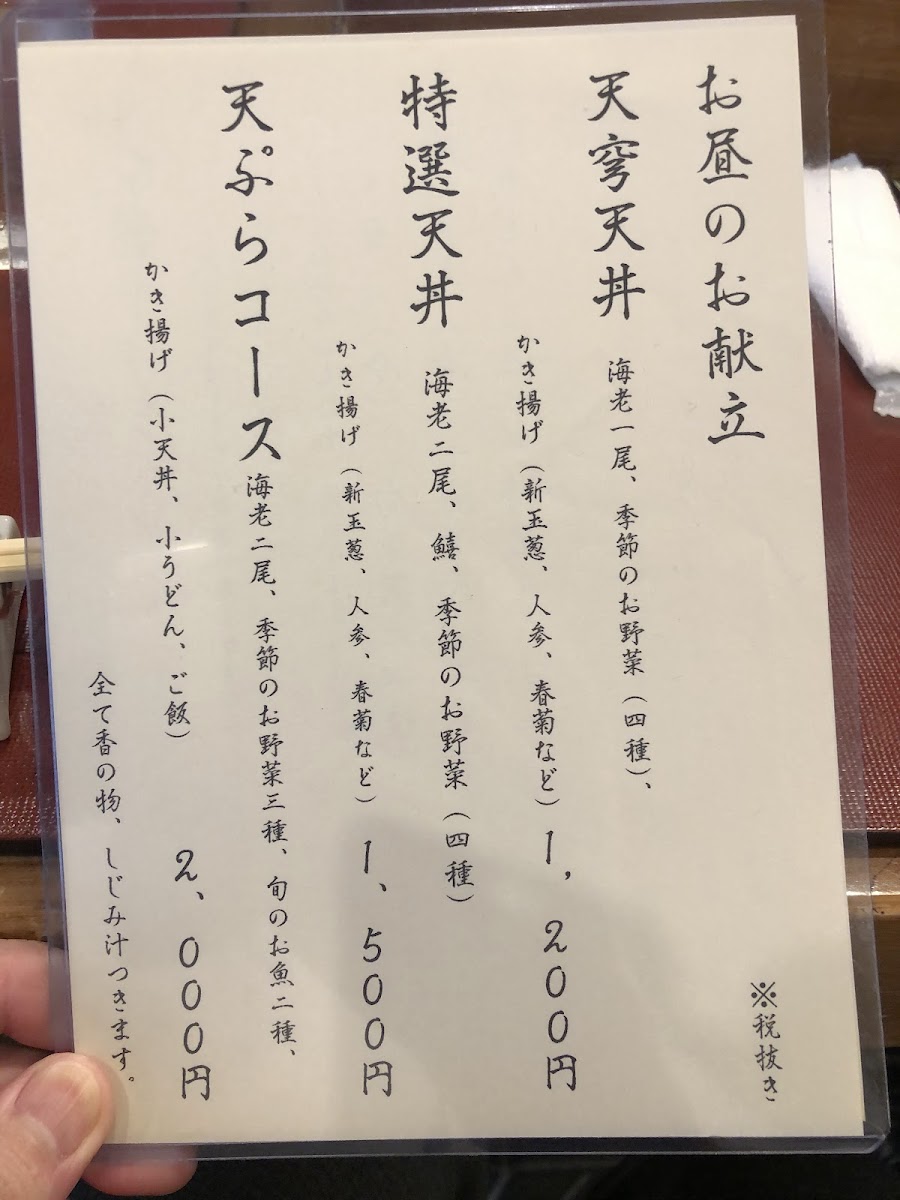 お昼のお献立
※税抜き
天穹天丼
海老一尾、季節のお野菜(四種)、
かき揚げ(新玉葱、人参、春菊など)1,200円
特選天丼
海老二尾、鱚、季節のお野菜(四種)
かき揚げ(新玉葱、人参、春菊など)1、500円
天ぷらコース
海老二尾、季節のお野菜三種、旬のお魚二種、
かき揚げ(小天丼、小うどん、ご飯)2、000円
全て香の物、しじみ汁つきます。